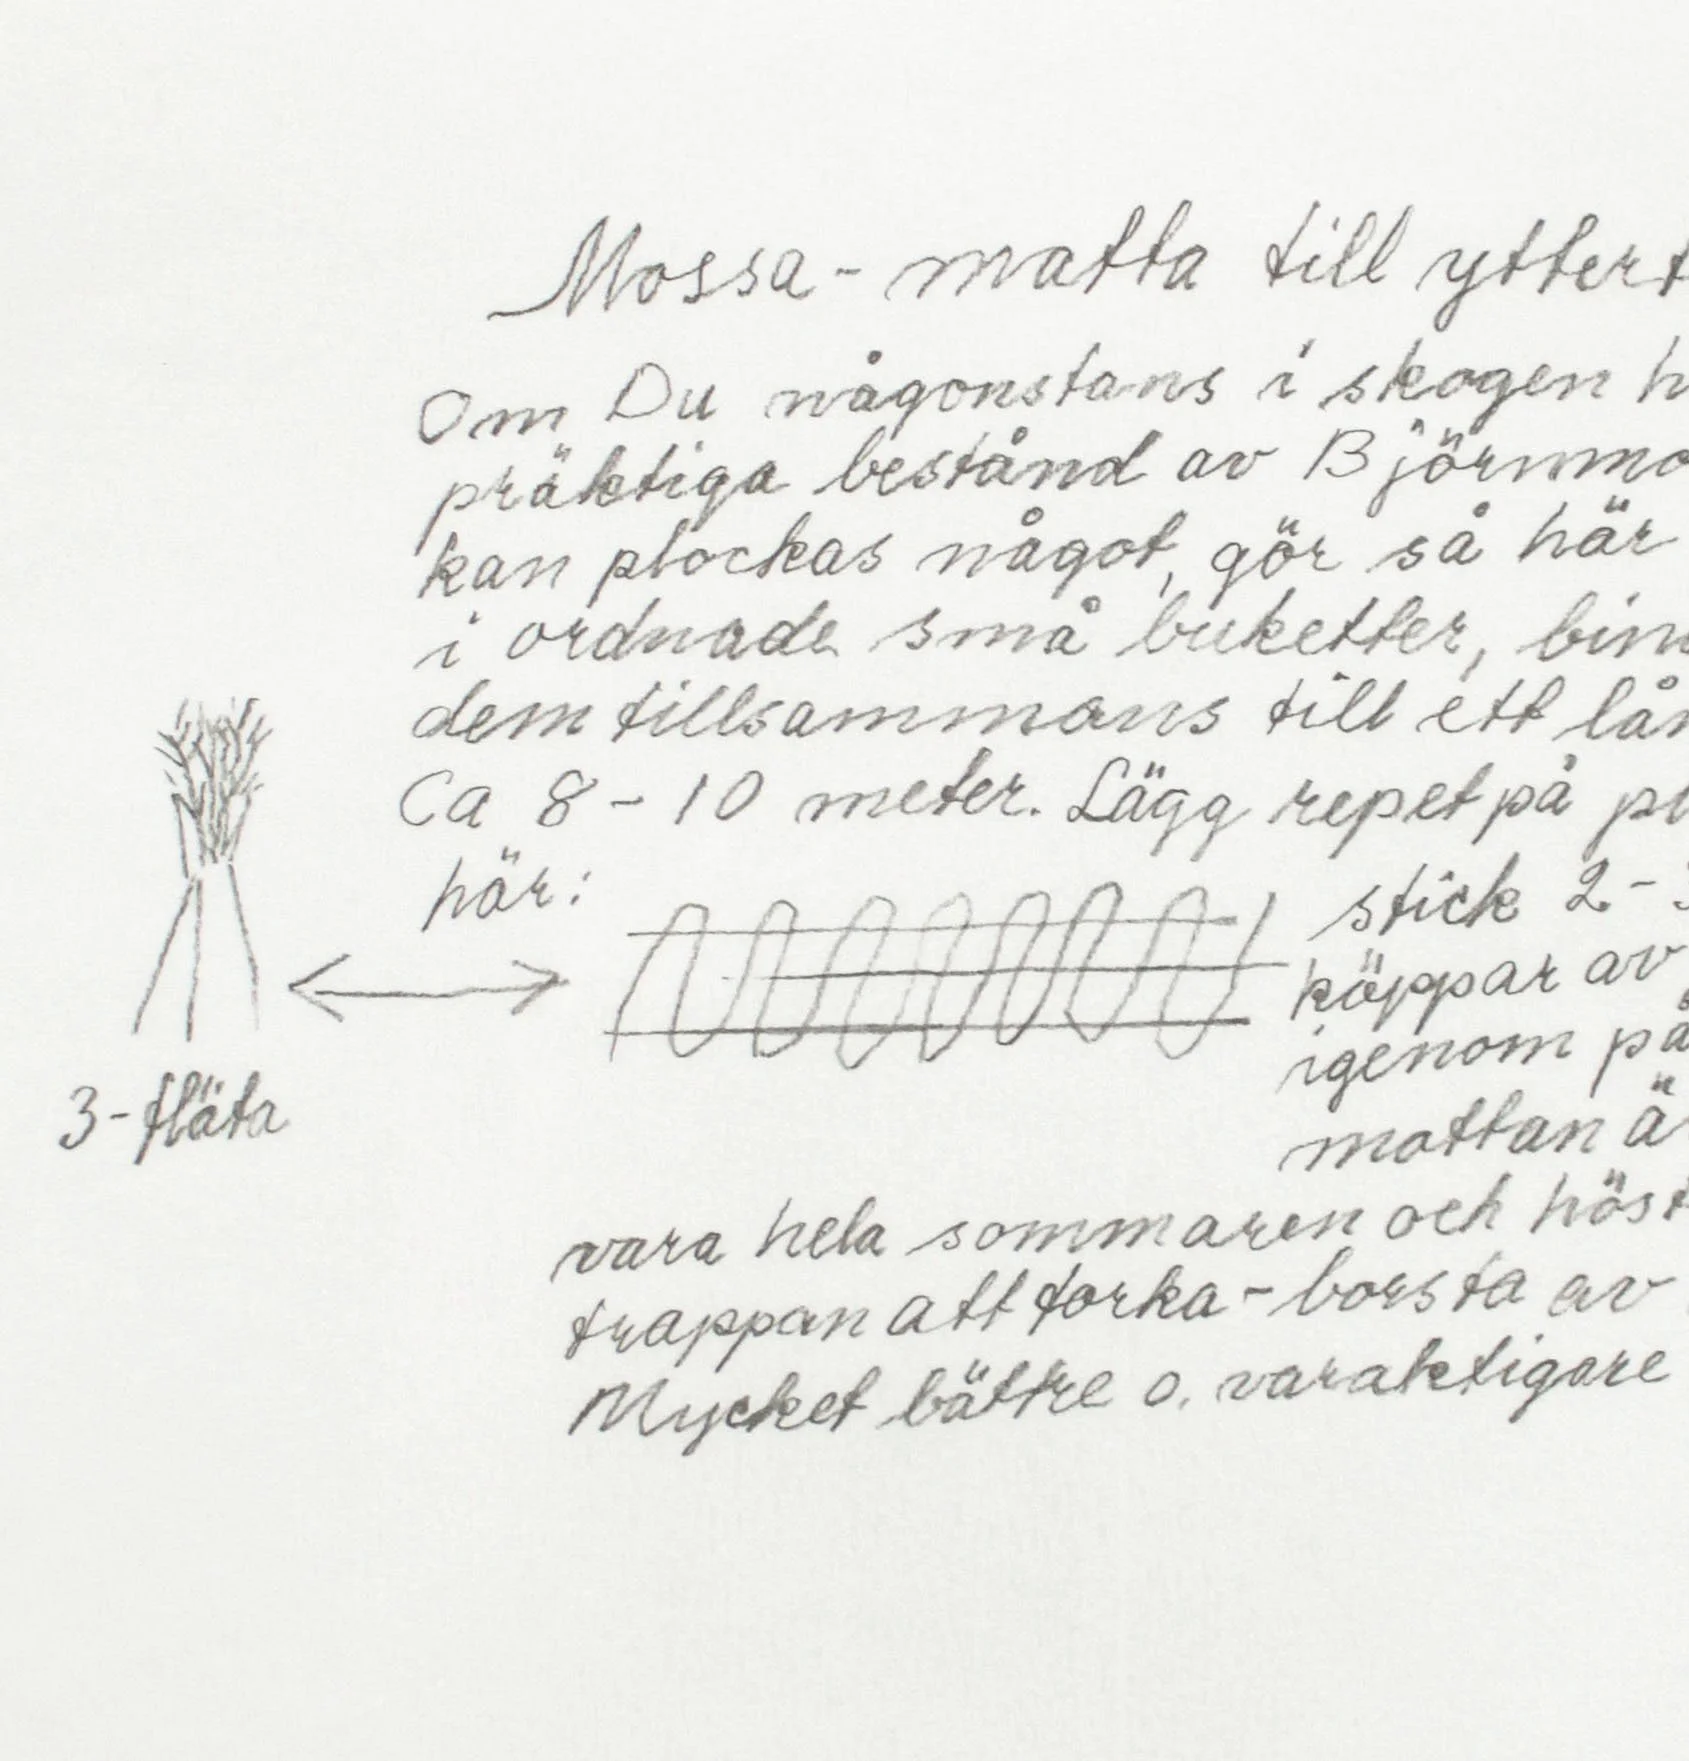 Mossa-matta till yttert
Om Du någonstans i skogen h
präktiga bestånd av Björnmo
kan plockas något, gör så här
i ordnade små buketter, bin
dem tillsammans till ett lån
Ca 8-10 meter. Lägg repet på pl
här:
stick 2-3
köppar av
igenom på
mattan är
3-fläta
vara hela sommaren och höst
trappan att torka-borsta av
Mycket bättre o. varaktigare